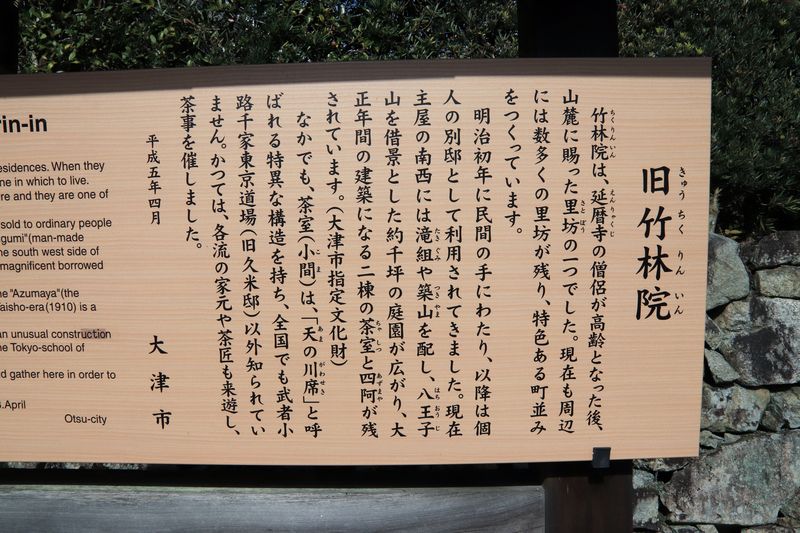 旧竹林院
竹林院は、延暦寺の僧侶が高齢となった後、
山麓に賜った里坊の一つでした。現在も周辺
には数多くの里坊が残り、特色ある町並み
をつくっています。
明治初年に民間の手にわたり、以降は個
人の別邸として利用されてきました。現在
主屋の南西には滝組や築山を配し、八王子
山を借景とした約千坪の庭園が広がり、大
正年間の建築になる二棟の茶室と四阿が残
されています。(大津市指定文化財)
なかでも、茶室(小間)は、「天の川席」と呼
ばれる特異な構造を持ち、全国でも武者小
路千家東京道場(旧久米邸)以外知られてい
ません。かつては、各流の家元や茶匠も来遊し、
茶事を催しました。
平成五年四月
大津市
rin-in
esidences. When they
ne in which to live.
re and they are one of
sold to ordinary people
gumi"(man-made
he south west side of
magnificent borrowed
he "Azumaya"(the
aisho-era(1910) is a
an unusual construction
he Tokyo-school of
d gather here in order to
.April
Otsu-city